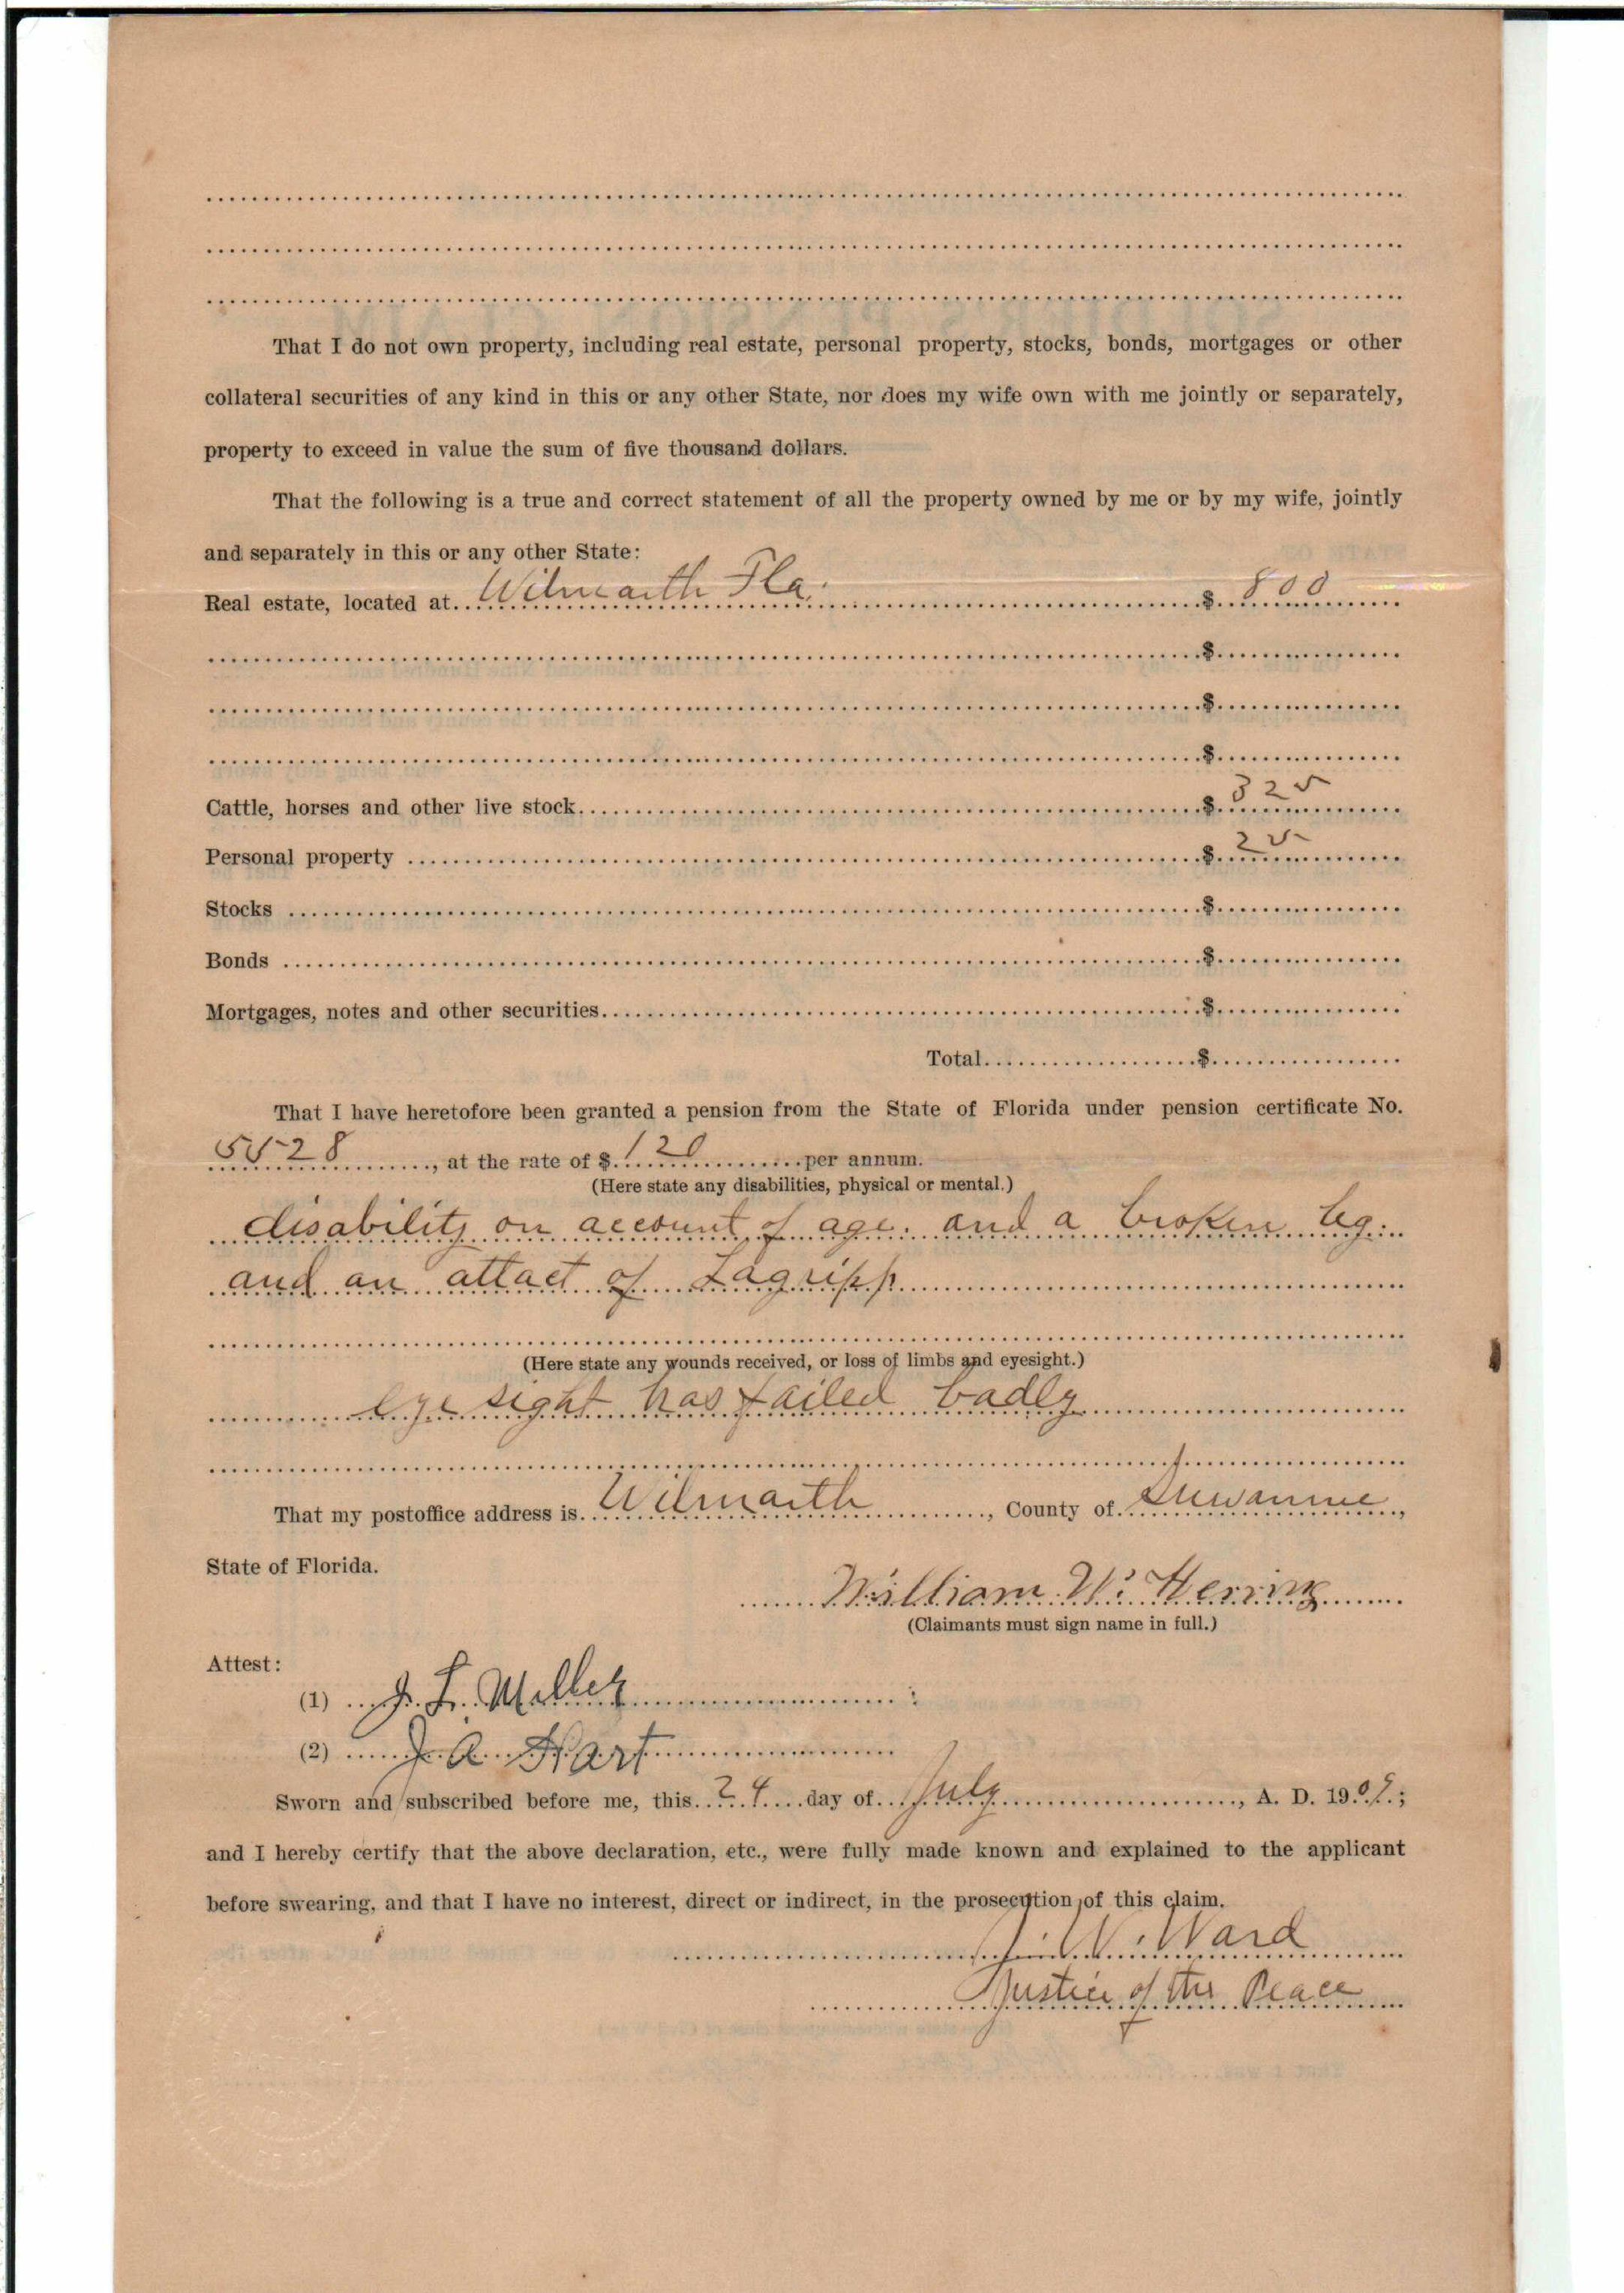 That I do not own property, including real estate, personal property, stocks, bonds, mortgages or other
collateral securities of any kind in this or any other State, nor does my wife own with me jointly or separately,
property to exceed in value the sum of five thousand dollars.
That the following is a true and correct statement of all the property owned by me or by my wife, jointly
and separately in this or any other State:
Real estate, located at Wilmarth Fla. $ 800
$
$
$
Cattle, horses and other live stock $ 325
Personal property $ 25
Stocks $
Bonds $
Mortgages, notes and other securities $
Total $
That I have heretofore been granted a pension from the State of Florida under pension certificate No.
5528, at the rate of $ 120 per annum.
(Here state any disabilities, physical or mental.)
disability on account of age. and a broken leg.
and an attact of Lagripp
(Here state any wounds received, or loss of limbs and eyesight.)
eye sight has failed badly
That my postoffice address is Wilmarth, County of Suwannee,
State of Florida.
William W. Herring
(Claimants must sign name in full.)
Attest:
(1) J. L. Miller
(2) J. A. Hart
Sworn and subscribed before me, this 24 day of July, A. D. 1909;
and I hereby certify that the above declaration, etc., were fully made known and explained to the applicant
before swearing, and that I have no interest, direct or indirect, in the prosecution of this claim.
Ward
Justice of the Peace